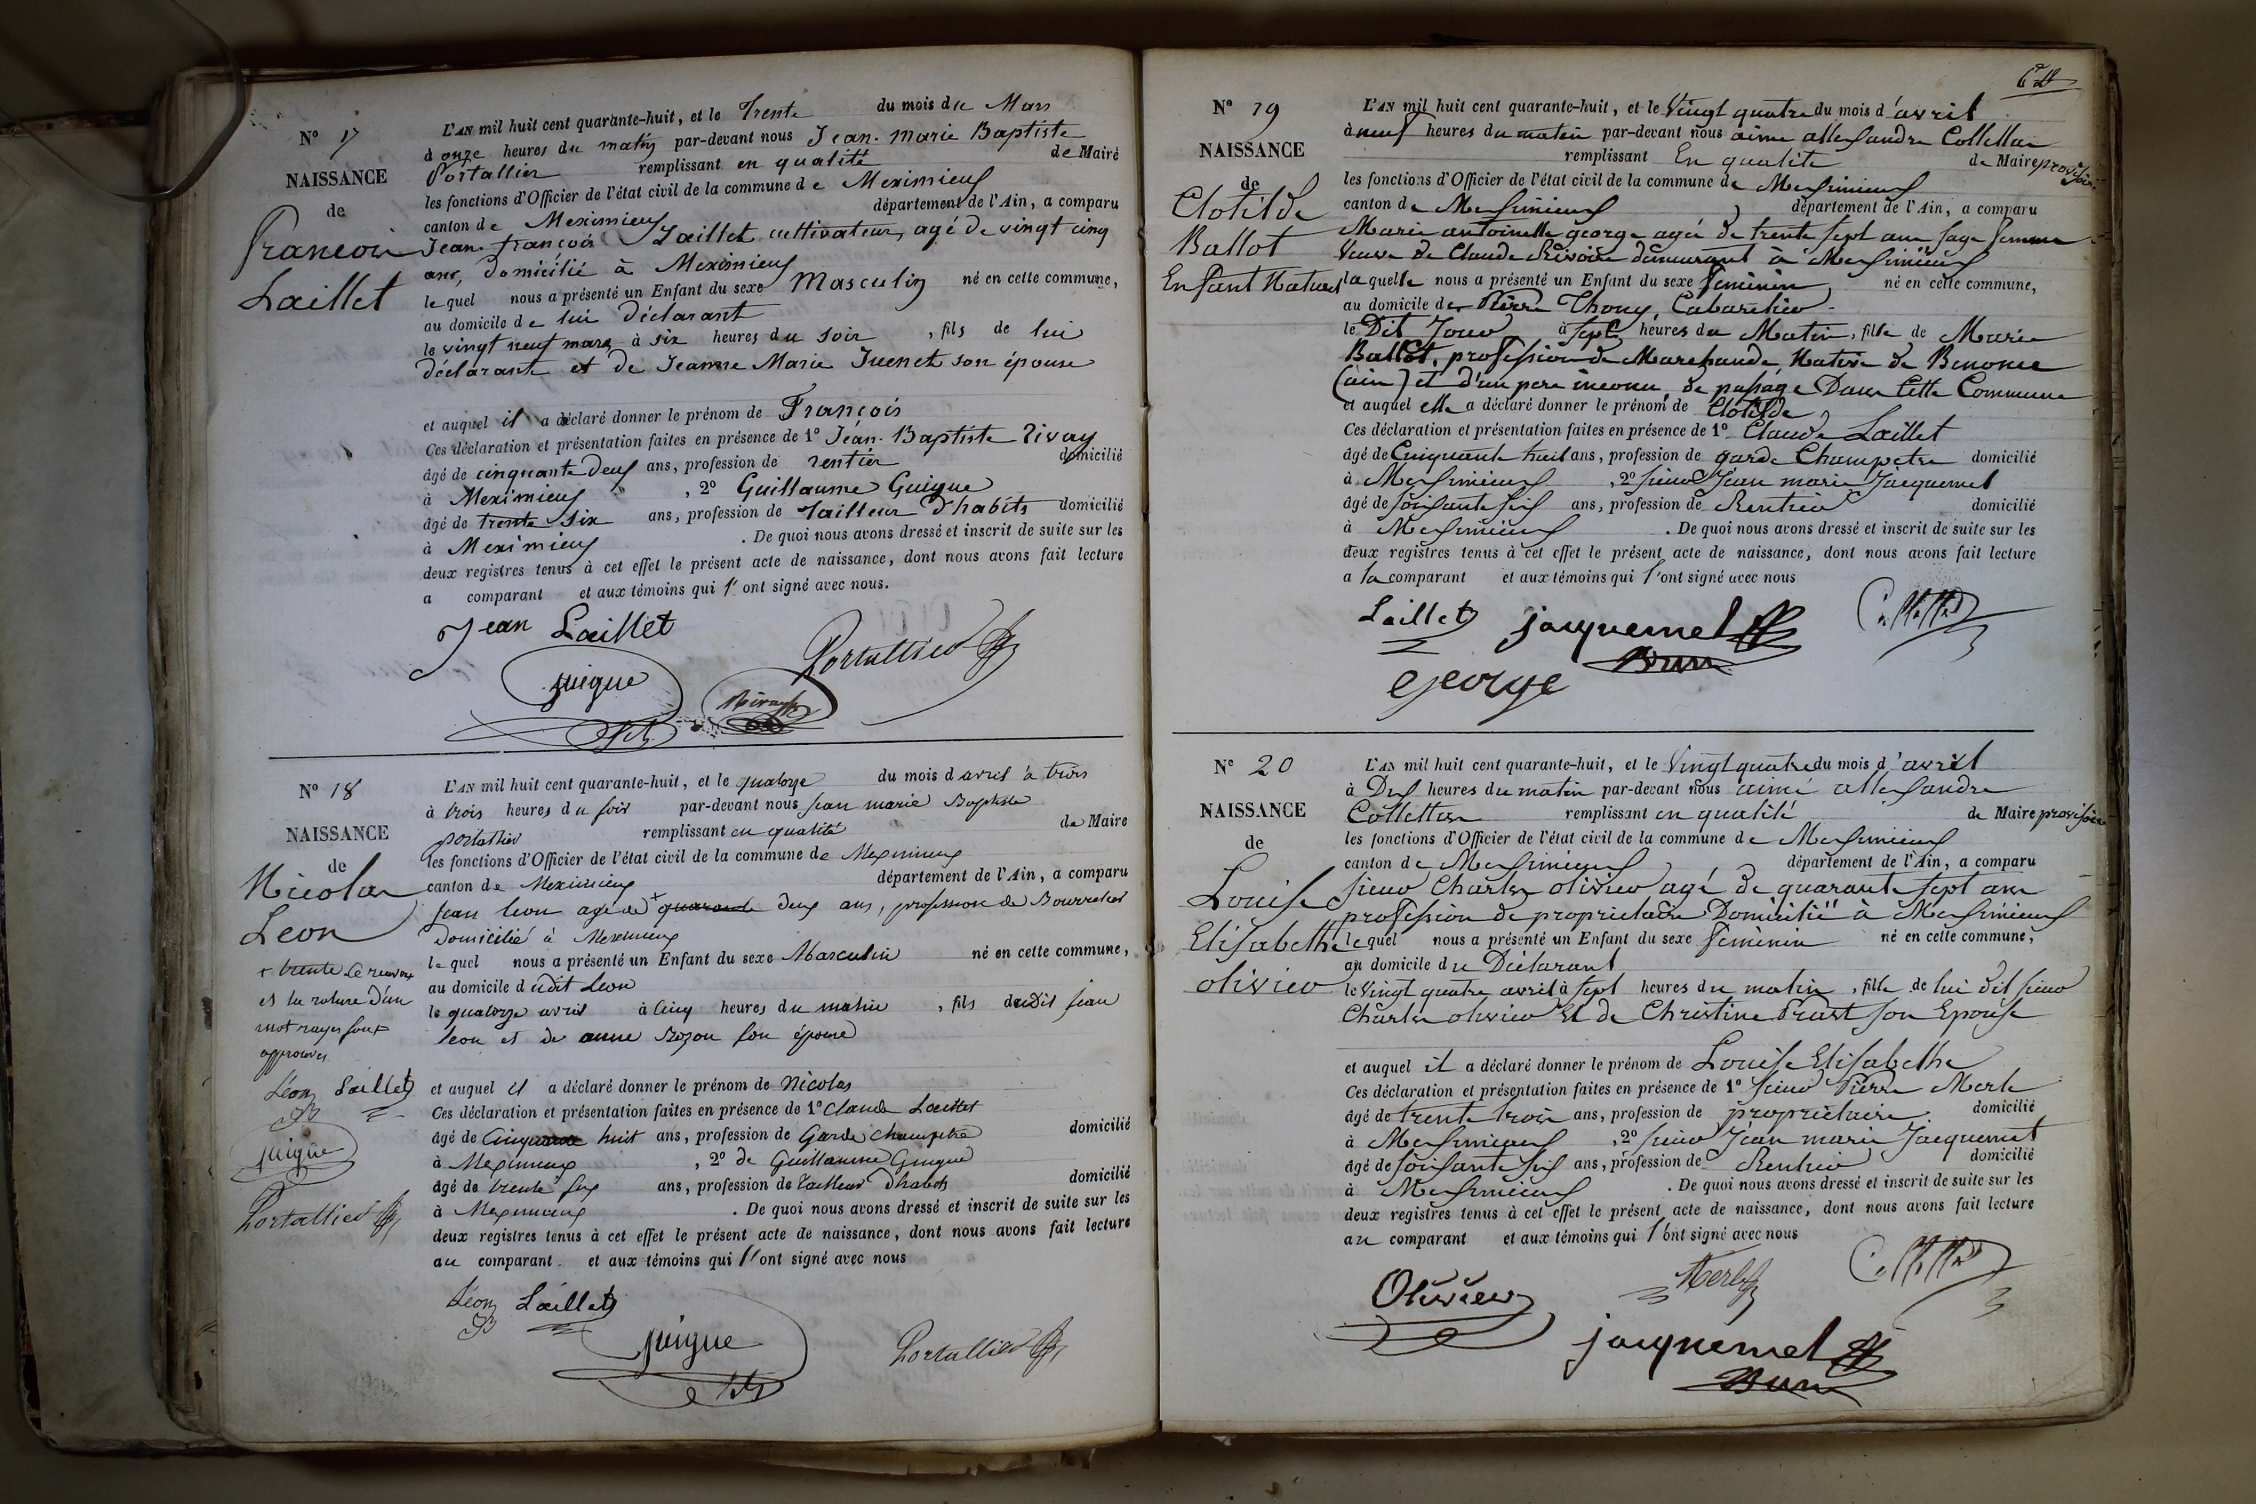 N° 17
NAISSANCE
de
François
Laillet
L'AN mil huit cent quarante-huit, et le Trente du mois de Mars
à onze heures du matin par-devant nous Jean-Marie Baptiste
Portallier remplissant en qualité de Maire
les fonctions d'Officier de l'état civil de la commune de Meximieux
canton de Meximieux département de l'Ain, a comparu
Jean-françois Laillet cultivateur, agé de vingt cinq
ans, domicilié à Meximieux
le quel nous a présenté un Enfant du sexe Masculin né en cette commune,
au domicile de lui déclarant
le vingt neuf mars à six heures du soir, fils de lui
déclarant et de Jeanne Marie Juenet son épouse
et auquel il a déclaré donner le prénom de François
Ces déclaration et présentation faites en présence de 1° Jean-Baptiste Rivay
âgé de cinquante deux ans, profession de rentier domicilié
à Meximieux, 2° Guillaume Guigue
âgé de trente six ans, profession de tailleur d'habits domicilié
à Meximieux. De quoi nous avons dressé et inscrit de suite sur les
deux registres tenus à cet effet le présent acte de naissance, dont nous avons fait lecture
a comparant et aux témoins qui l'ont signé avec nous.
Jean Laillet
Portallier
guigue
N° 18
NAISSANCE
de
Nicolas
Leon
+ trente le renvoi
et la rature d'un
mot rayé sont
approuvés
Léon Laillet
guigue
Portallier
L'AN mil huit cent quarante-huit, et le quatorze du mois d'avril à trois
à trois heures du soir par-devant nous Jean marie Baptiste
portallier remplissant en qualité de Maire
les fonctions d'Officier de l'état civil de la commune de Meximieux
canton de Meximieux département de l'Ain, a comparu
Jean leon agé de + quarante deux ans, profession de Bourrelier
domicilié à Meximieux
le quel nous a présenté un Enfant du sexe Masculin né en cette commune,
au domicile dudit Leon
le quatorze avril à Cinq heures du matin, fils dudit jean
leon et de anne Rozon son épouse
et auquel il a déclaré donner le prénom de Nicolas
Ces déclaration et présentation faites en présence de 1° Claude Laillet
âgé de Cinquante huit ans, profession de Garde champetre domicilié
à Meximieux, 2° de Guillaume Guigue
âgé de trente six ans, profession de tailleur d'habits domicilié
à Meximieux. De quoi nous avons dressé et inscrit de suite sur les
deux registres tenus à cet effet le présent acte de naissance, dont nous avons fait lecture
au comparant et aux témoins qui l'ont signé avec nous
Léon Laillet
guigue
Portallier
N° 19
NAISSANCE
de
Clotilde
Ballot
Enfant Naturel
L'AN mil huit cent quarante-huit, et le Vingt quatre du mois d'avril
à neuf heures du matin par-devant nous aimé allexandre Collettas
remplissant En qualité de Maire provisoire
les fonctions d'Officier de l'état civil de la commune de Meximieux
canton de Meximieux département de l'Ain, a comparu
Marie antoinette george agée de trente sept ans sage femme
Veuve de Claude Rivoire demeurant à Meximieux
la quelle nous a présenté un Enfant du sexe féminin né en cette commune,
au domicile de Pierre Thomy, Cabaretier
le Dit Jour à sept heures du Matin, fille de Marie
Ballot, profession de Marchande, Native de Benonce
(ain) et d'un pere inconnu, de passage Dans Cette Commune
et auquel elle a déclaré donner le prénom de Clotilde
Ces déclaration et présentation faites en présence de 1° Claude Laillet
âgé de Cinquante huit ans, profession de garde Champetre domicilié
à Meximieux, 2° sieur Jean marie Jacquemet
âgé de soixante six ans, profession de Rentier domicilié
à Meximieux. De quoi nous avons dressé et inscrit de suite sur les
deux registres tenus à cet effet le présent acte de naissance, dont nous avons fait lecture
a la comparant et aux témoins qui l'ont signé avec nous
Laillet jacquemet
george
N° 20
NAISSANCE
de
Louise
Elisabethe
olivier
L'AN mil huit cent quarante-huit, et le Vingt quatre du mois d'avril
à Dix heures du matin par-devant nous aimé allexandre
Collettas remplissant en qualité de Maire provisoire
les fonctions d'Officier de l'état civil de la commune de Meximieux
canton de Meximieux département de l'Ain, a comparu
sieur Charles olivier agé de quarante sept ans
profession de proprietaire Domicilié à Meximieux
le quel nous a présenté un Enfant du sexe féminin né en cette commune,
au domicile du Déclarant
le Vingt quatre avril à sept heures du matin, fille de lui dit sieur
Charles olivier Et de Christine Prost son Epouse
et auquel il a déclaré donner le prénom de Louise Elisabethe
Ces déclaration et présentation faites en présence de 1° sieur Pierre Merle
âgé de trente trois ans, profession de propriétaire domicilié
à Meximieux, 2° sieur Jean marie Jacquemet
âgé de soixante six ans, profession de Rentier domicilié
à Meximieux. De quoi nous avons dressé et inscrit de suite sur les
deux registres tenus à cet effet le présent acte de naissance, dont nous avons fait lecture
au comparant et aux témoins qui l'ont signé avec nous
Olivier Merle
jacquemet